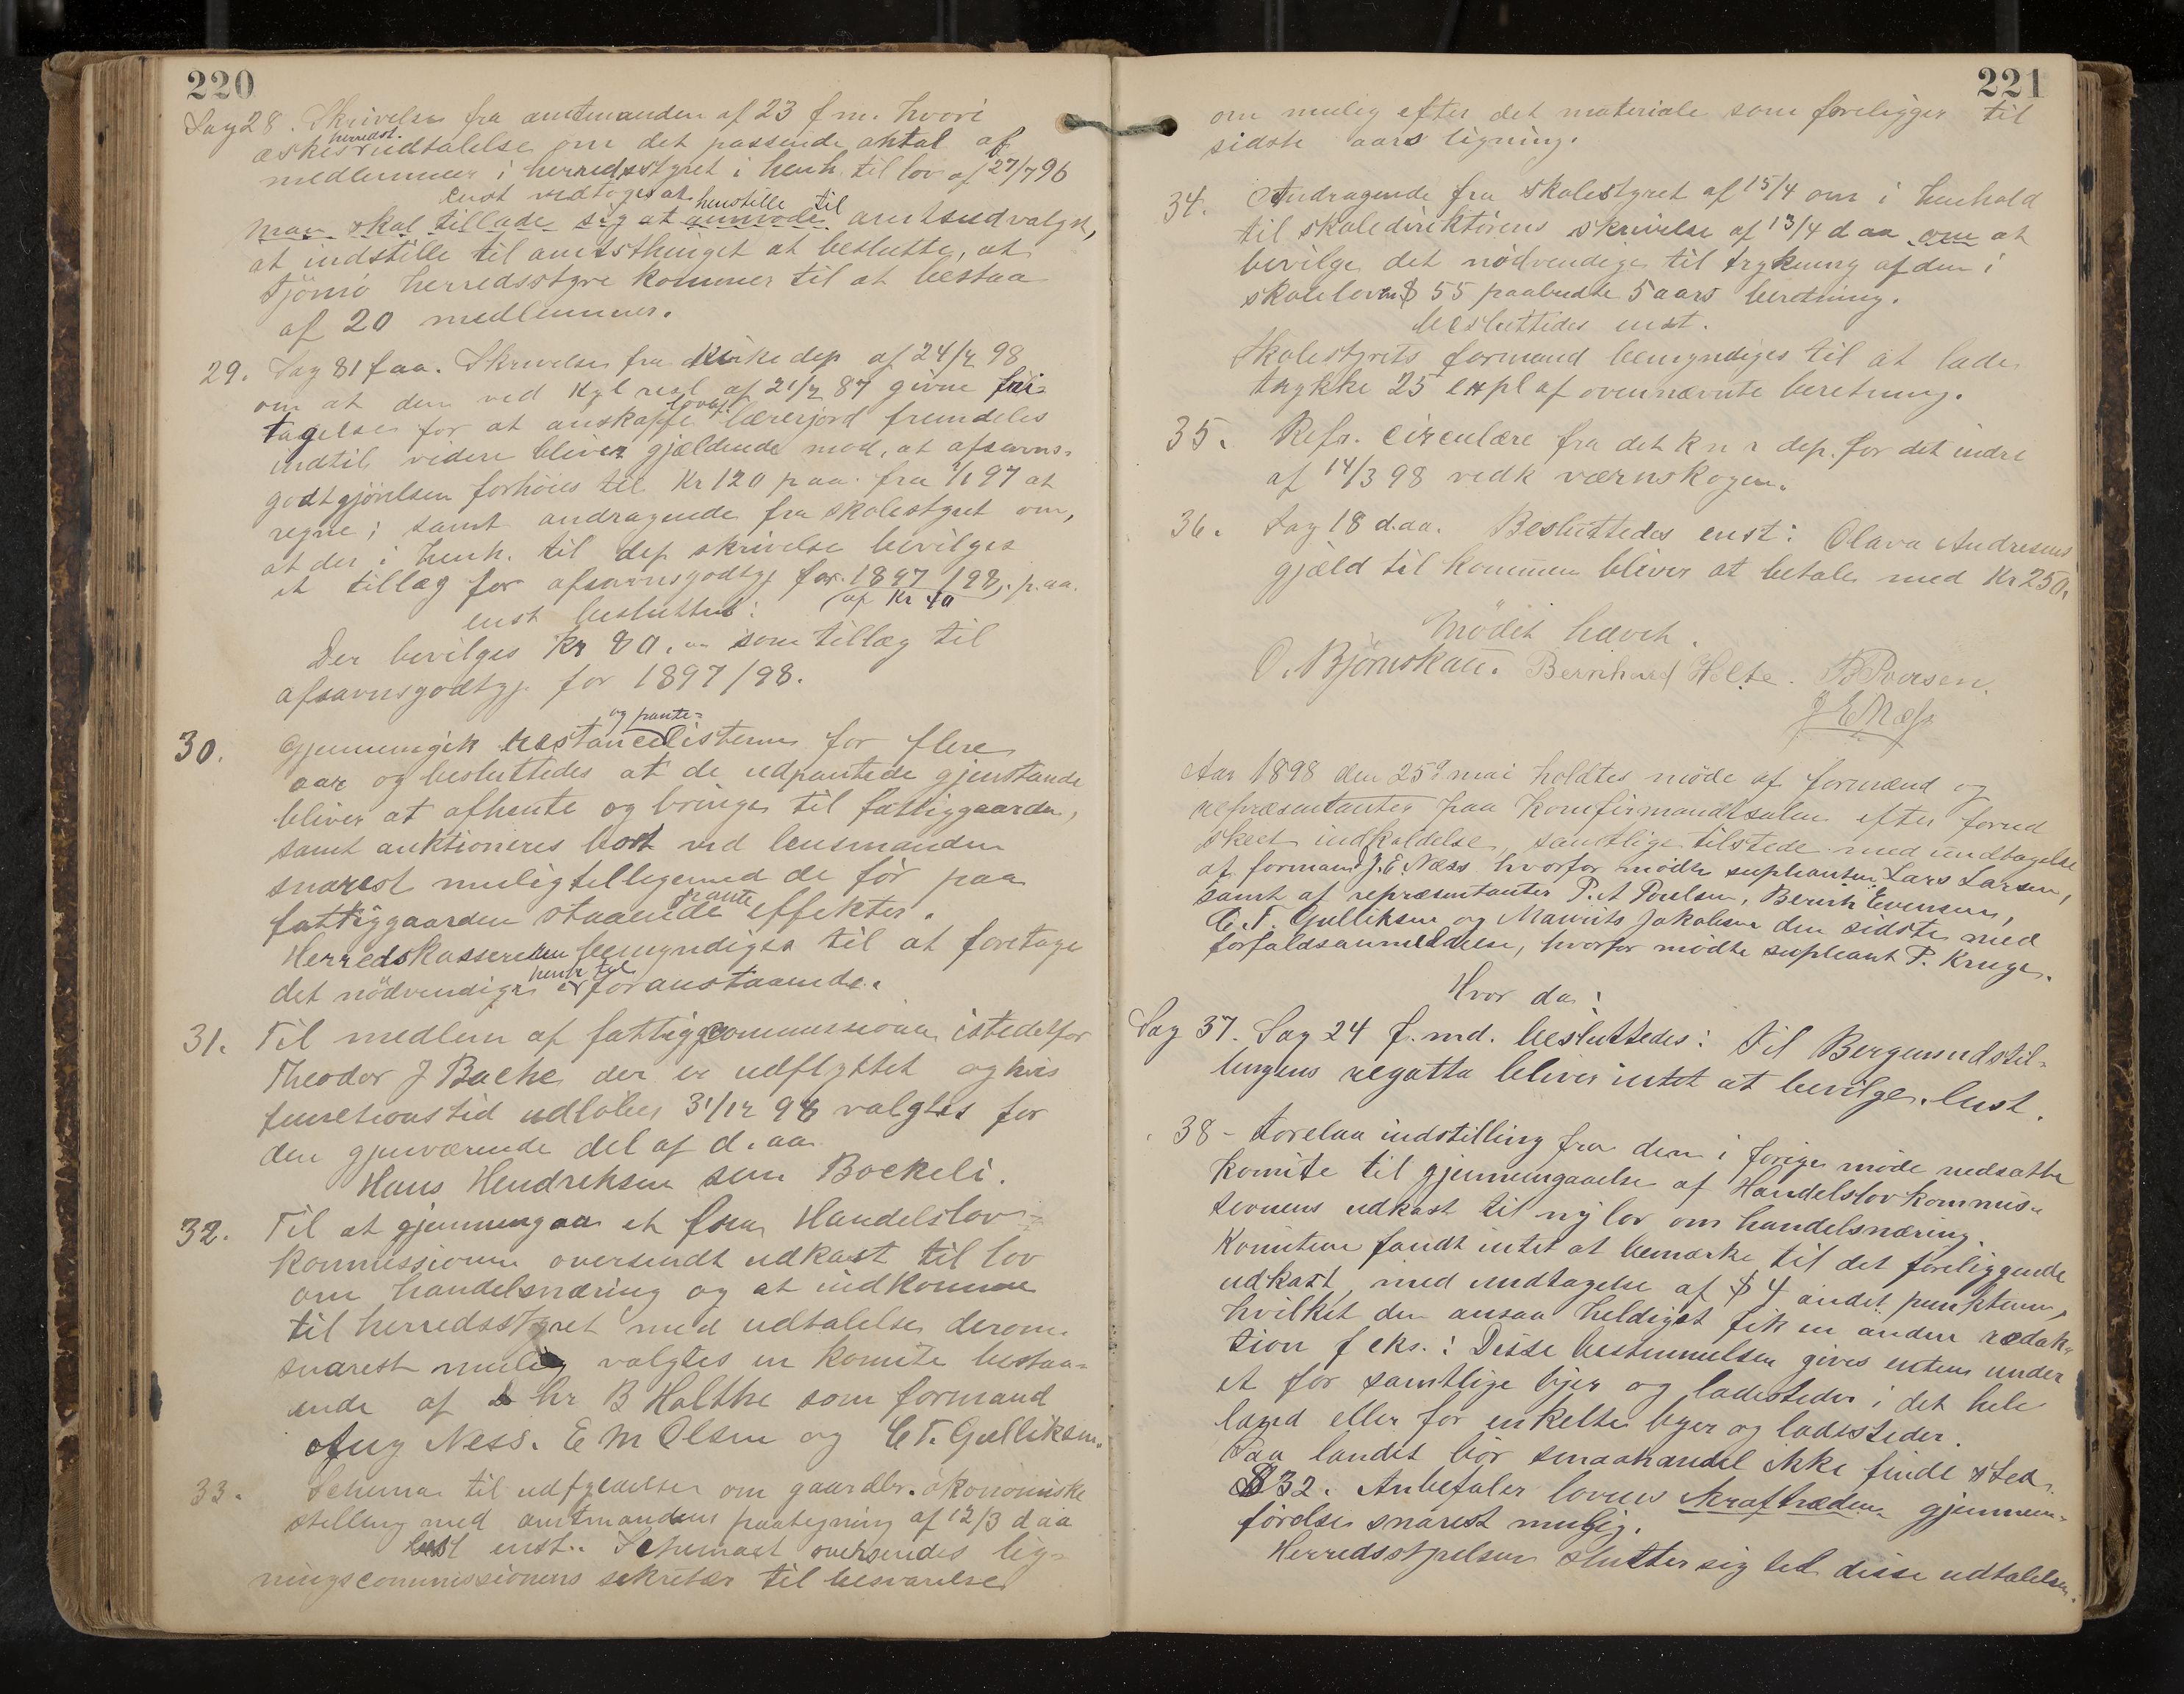 220
Sag 28. Skrivelse fra amtmanden af 23 f m. hvori
æskes herredst. udtalelse om det passende antal af
medlemmer i herredsstyret i henh. til lov af 27/7 96
Enst vedtoges at henstille til
Man skal tillade sig at anmode amtsudvalget,
at indstille til amtsthinget at beslutte, at
Tjömö herredsstyre kommer til at bestaa
af 20 medlemmer.
29. Sag 81 f aa. Skrivelse fra Kirkedep af 24/2 98
om at den ved Kgl resl af 21/2 87 givne fri-
tagelse for at anskaffe lovbf. lærerjord fremdeles
indtil videre bliver gjældende mod, at afsavns-
godtgjörelsen forhöies til Kr 120 p aa. fra 1/1 97 at
regne; samt andragende fra skolestyret om,
at der i henh. til dep skrivelse bevilges
et tillæg for afsavnsgodtgj for 1897/98, p. aa.
af Kr 40
enst besluttet:
Der bevilges Kr 80.00 som tillæg til
afsavnsgodtgj. for 1897/98.
30. Gjennemgik restance og pante- listerne for flere
aar og besluttedes at de udpantede gjenstande
bliver at afhente og bringe til fattiggaarden,
samt auktioneres bort ved lensmanden
snarest mulig tilligemed de för paa
fattiggaarden staaende pante effekter.
Herredskassereren bemyndiges til at foretage
det nödvendige i henh til foranstaaende.
31. Til medlem af fattigcommissionen istedetfor
Theodor J Bache der er udflyttet og hvis
functionstid udlöber 31/12 98 valgtes for
den gjenværende del af d. aa
Hans Hendriksen sem Bockeli.
32. Til at gjennemgaa et fra Handelslov-
kommissionen oversendt udkast til lov
om handelsnæring og at indkomme
til herredsstyret med udtalelse derom
snarest mulig valgtes en komite bestaa-
ende af hr B Holthe som formand
Aug Ness. E M Olsen og C T. Gulliksen.
33. Schema til udfyldelse om gaardbr. ökonomiske
stilling med amtmandens paategning af 12/3 d aa
enst.. Schemaet oversendes lig-
ningscommissionens sekretær til besvarelse
221
om mulig efter det materiale som foreligger til
sidste aars ligning.
34. Andragende fra skolestyret af 15/4 om i henhold
til skoledirektörens skrivelse af 13/4 d aa om at
bevilge det nödvendige til trykning af den i
skoleloven § 55 paabudte 5 aars beretning.
besluttedes enst.
Skolestyrets formand bemyndiges til at lade
trykke 25 expl af ovennævnte beretning.
35. Refr. Circulære fra det k n r dep. for det indre
af 14/3 98 vedk værnskogen.
36. Sag 18 d. aa. Besluttedes enst: Olava Andresens
gjæld til kommunen bliver at betale med Kr 250.
Mödet hævet.
O. Björnskau. Bernhard Holte. B Poersen.
J E Næss
Aar 1898 den 25de mai holdtes möde af formænd og
repræsentanter paa Konfirmandsalen efter forud
skeet indkaldelse, samtlige tilstede med undtagelse
af formand J. E. Næss hvorfor mödte supleanten Lars Larsen,
samt af repræsentanter P. A Poulsen, Bernh Evensen,
C. T. Gulliksen og Mauritz Jakobsen den sidste med
forfaldsanmeldelse, hvorfor mödte supleant P. Kruge.
Hvor da:
Sag 37. Sag 24 f. md. besluttedes: Til Bergenudstil-
lingens regatta bliver intet at bevilge. Enst.
38 - Forelaa indstilling fra den i forige möde nedsatte
komite til gjennemgaaelse af Handelslovkommis-
sionens udkast til ny lov om handelsnæring.
Komiteen fandt intet at bemærke til det foreliggende
udkast, med undtagelse af § 4 andet punktum,
hvilket den ansaa heldigst fik en anden redak-
tion f eks.: Disse bestemmelser gives enten under
et for samtlige byer og ladesteder i det hele
land eller for enkelte byer og ladesteder.
Paa landet bör smaahandel ikke finde sted.
§ 32. Anbefaler lovens ikrafttræden gjennem-
förelse snarest mulig.
Herredsstyrelsen slutter sig til disse udtalelser.